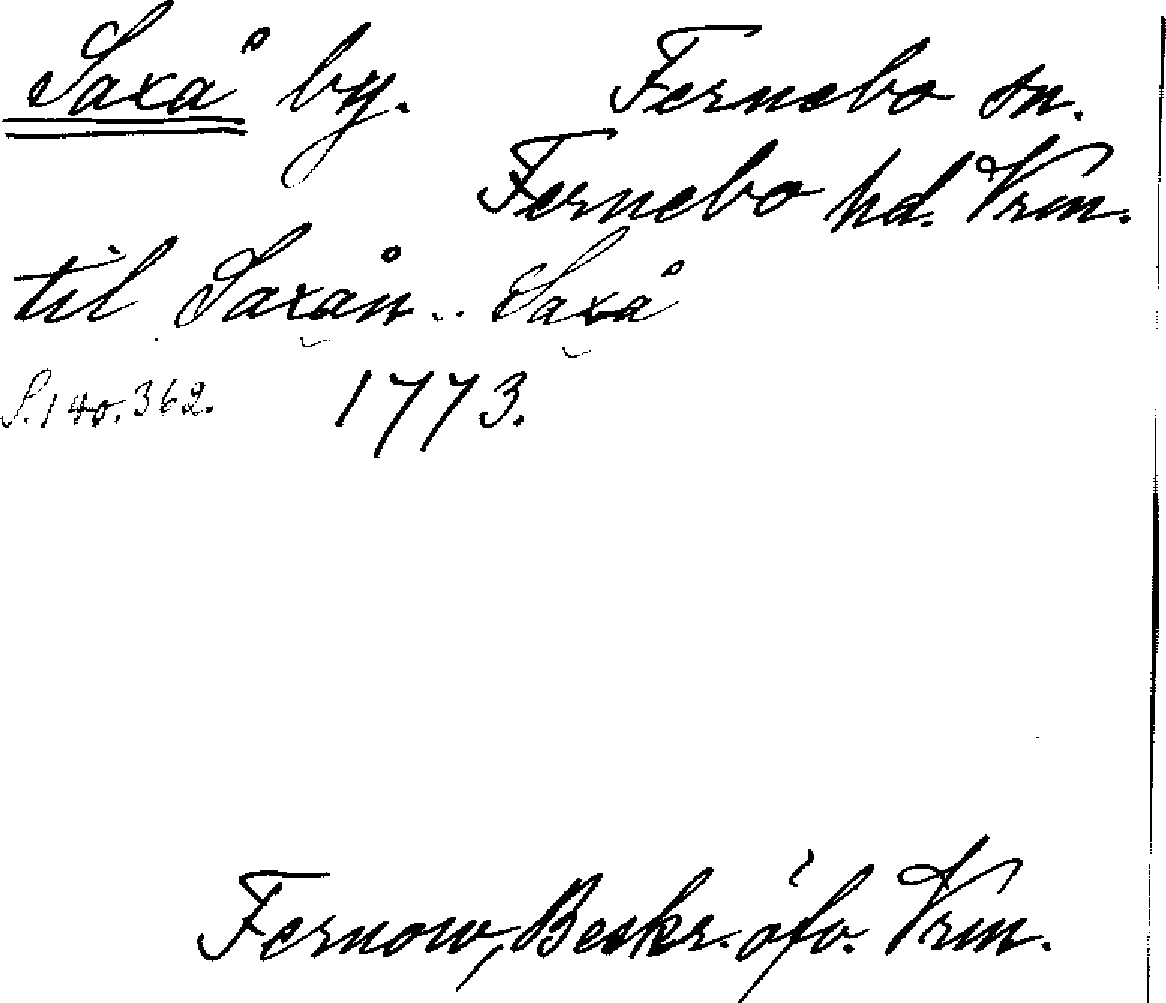 Saxå by. Fernebo sn.
Fernebo hd. Vrm.
til Saxån .. Saxå
S. 140. 362. 1773.
Fernow, Beskr. öfv. Vrm.